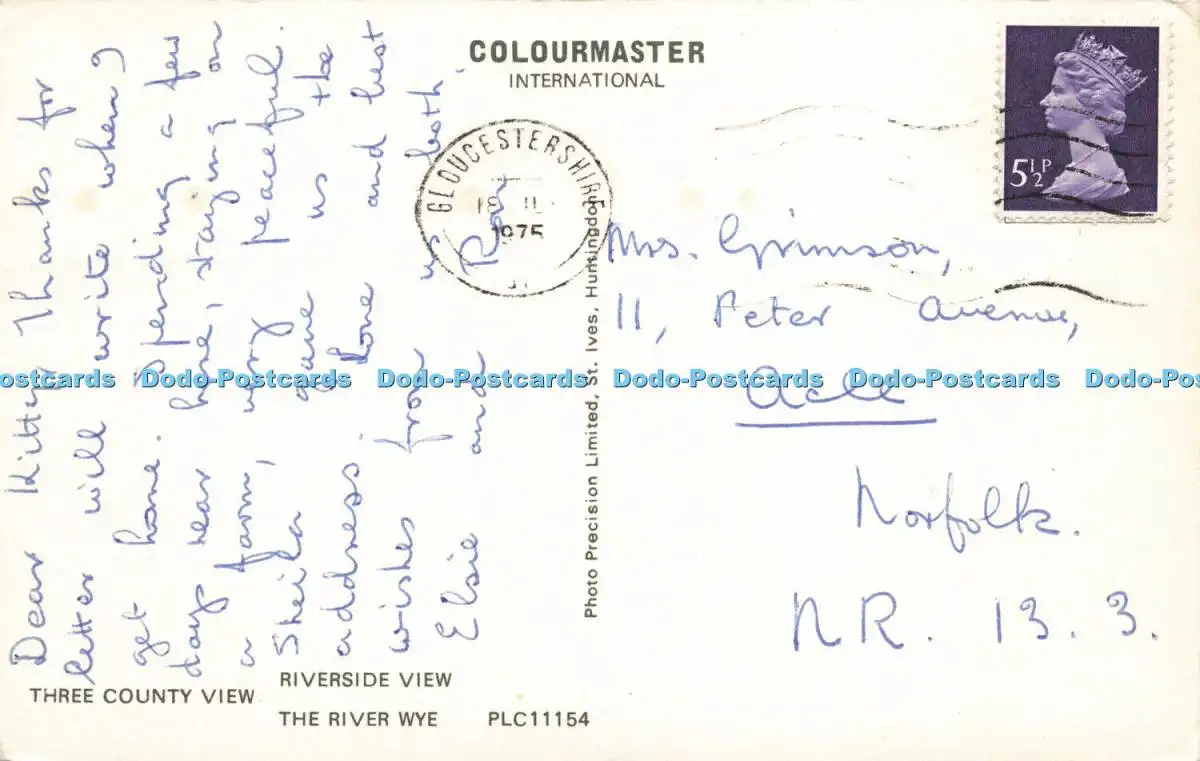 COLOURMASTER
INTERNATIONAL
GLOUCESTERSHIRE
1975
5½P
Dear Kitty, Thanks for
letter will write when I
get home. Spending a few
days near here, staying on
a farm, very peaceful.
Sheila gave us the
address. Love and best
wishes from us both.
Elsie and Ron
Mrs. Grimson,
11, Peter Avenue,
Acle
Norfolk.
N.R. 13. 3.
Photo Precision Limited, St. Ives, Huntingdon
THREE COUNTY VIEW
RIVERSIDE VIEW
THE RIVER WYE PLC11154
Dodo-Postcards Dodo-Postcards Dodo-Postcards Dodo-Postcards Dodo-Postcards